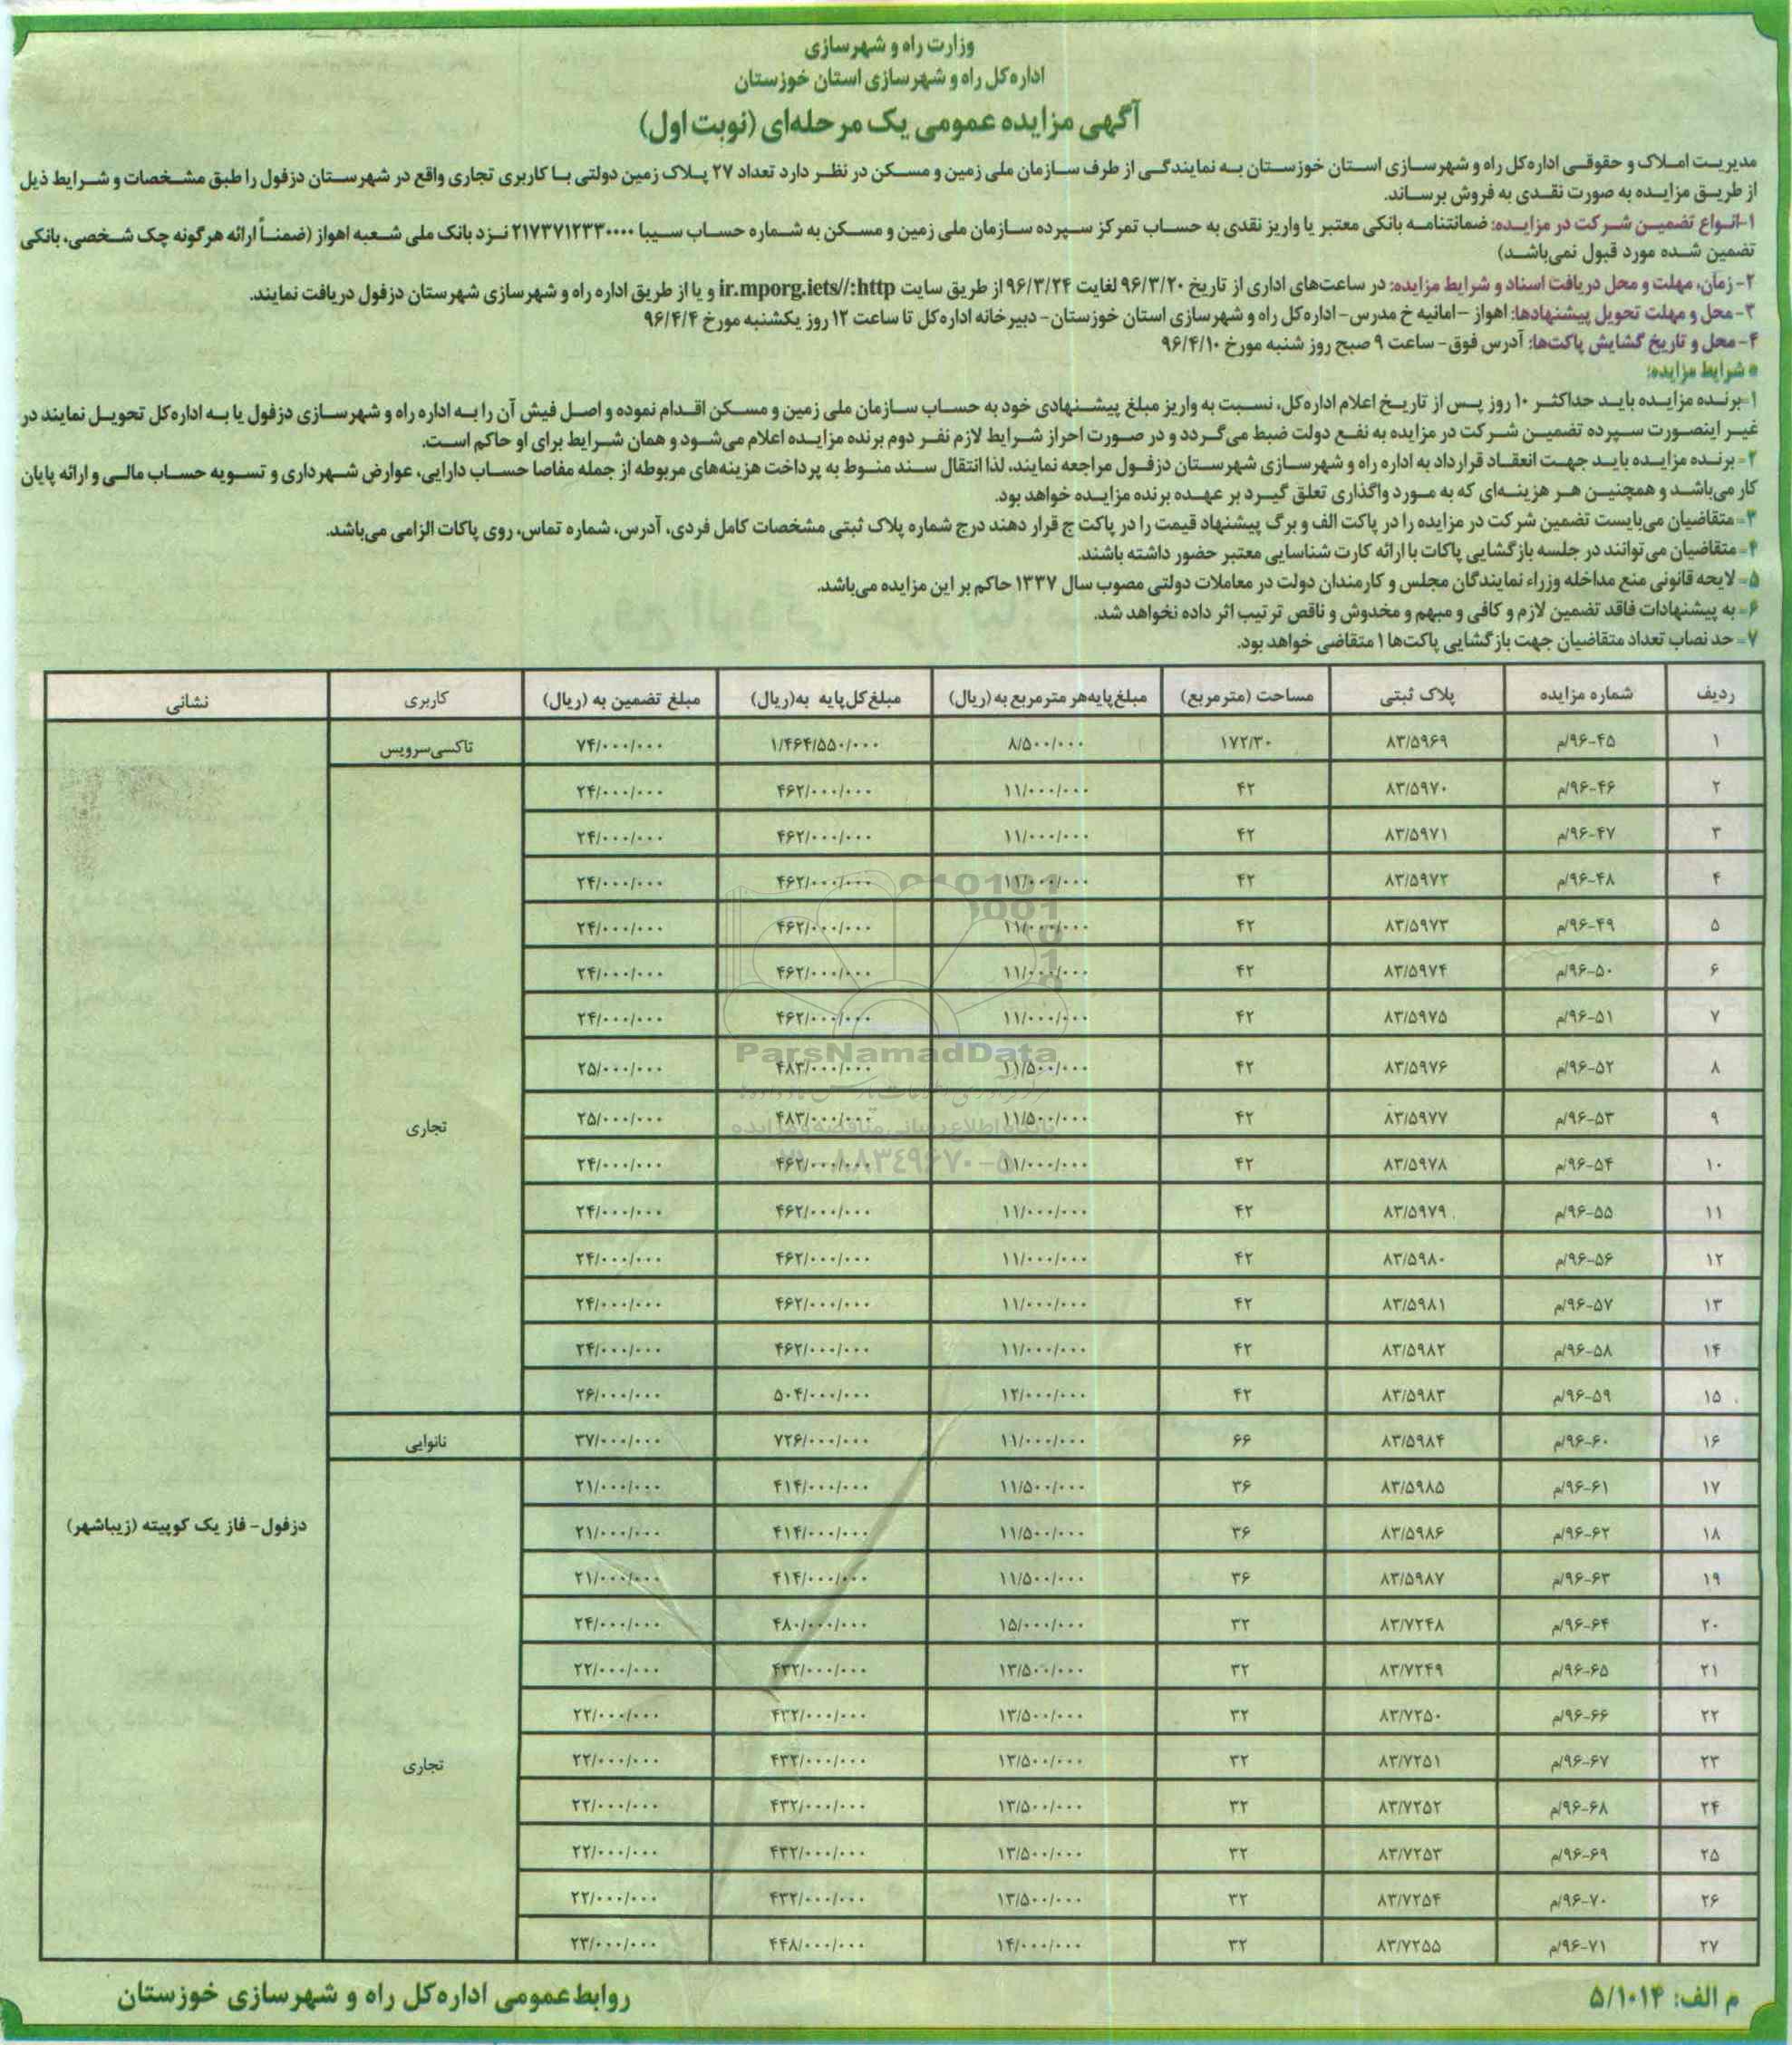 وزارت راه و شهرسازی
اداره‌کل راه و شهرسازی استان خوزستان
آگهی مزایده عمومی یک مرحله‌ای (نوبت اول)
مدیریت املاک و حقوقی اداره‌کل راه و شهرسازی استان خوزستان به نمایندگی از طرف سازمان ملی زمین و مسکن در نظر دارد تعداد ۲۷ پلاک زمین دولتی با کاربری تجاری واقع در شهرستان دزفول را طبق مشخصات و شرایط ذیل
از طریق مزایده به صورت نقدی به فروش برساند.
۱-انواع تضمین شرکت در مزایده: ضمانتنامه بانکی معتبر یا واریز نقدی به حساب تمرکز سپرده سازمان ملی زمین و مسکن به شماره حساب سیبا ۲۱۷۳۷۱۲۳۳۰۰۰۰ نزد بانک ملی شعبه اهواز (ضمناً ارائه هرگونه چک شخصی، بانکی
تضمین شده مورد قبول نمی‌باشد)
۲- زمان، مهلت و محل دریافت اسناد و شرایط مزایده: در ساعت‌های اداری از تاریخ ۹۶/۳/۲۰ لغایت ۹۶/۳/۲۴ از طریق سایت ir.mporg.iets//:http و یا از طریق اداره راه و شهرسازی شهرستان دزفول دریافت نمایند.
۳- محل و مهلت تحویل پیشنهادها: اهواز –امانیه خ مدرس- اداره‌کل راه و شهرسازی استان خوزستان- دبیرخانه اداره‌کل تا ساعت ۱۲ روز یکشنبه مورخ ۹۶/۴/۴
۴- محل و تاریخ گشایش پاکت‌ها: آدرس فوق- ساعت ۹ صبح روز شنبه مورخ ۹۶/۴/۱۰
* شرایط مزایده:
۱-برنده مزایده باید حداکثر ۱۰ روز پس از تاریخ اعلام اداره‌کل، نسبت به واریز مبلغ پیشنهادی خود به حساب سازمان ملی زمین و مسکن اقدام نموده و اصل فیش آن را به اداره راه و شهرسازی دزفول یا به اداره‌کل تحویل نمایند در
غیر اینصورت سپرده تضمین شرکت در مزایده به نفع دولت ضبط می‌گردد و در صورت احراز شرایط لازم نفر دوم برنده مزایده اعلام می‌شود و همان شرایط برای او حاکم است.
۲- برنده مزایده باید جهت انعقاد قرارداد به اداره راه و شهرسازی شهرستان دزفول مراجعه نمایند، لذا انتقال سند منوط به پرداخت هزینه‌های مربوطه از جمله مفاصا حساب دارایی، عوارض شهرداری و تسویه حساب مالی و ارائه پایان
کار می‌باشد و همچنین هر هزینه‌ای که به مورد واگذاری تعلق گیرد بر عهده برنده مزایده خواهد بود.
۳- متقاضیان می‌بایست تضمین شرکت در مزایده را در پاکت الف و برگ پیشنهاد قیمت را در پاکت ج قرار دهند درج شماره پلاک ثبتی مشخصات کامل فردی، آدرس، شماره تماس، روی پاکات الزامی می‌باشد.
۴- متقاضیان می‌توانند در جلسه بازگشایی پاکات با ارائه کارت شناسایی معتبر حضور داشته باشند.
۵- لایحه قانونی منع مداخله وزراء نمایندگان مجلس و کارمندان دولت در معاملات دولتی مصوب سال ۱۳۳۷ حاکم بر این مزایده می‌باشد.
۶- به پیشنهادات فاقد تضمین لازم و کافی و مبهم و مخدوش و ناقص ترتیب اثر داده نخواهد شد.
۷- حد نصاب تعداد متقاضیان جهت بازگشایی پاکت‌ها ۱ متقاضی خواهد بود.
ردیف شماره مزایده پلاک ثبتی مساحت (مترمربع) مبلغ‌پایه‌هر مترمربع به (ریال) مبلغ‌کل‌پایه به(ریال) مبلغ تضمین به (ریال) کاربری نشانی
۱ ۹۶-۴۵/م ۸۳/۵۹۶۹ ۱۷۲/۳۰ ۸/۵۰۰/۰۰۰ ۱/۴۶۴/۵۵۰/۰۰۰ ۷۴/۰۰۰/۰۰۰ تاکسی‌سرویس
۲ ۹۶-۴۶/م ۸۳/۵۹۷۰ ۴۲ ۱۱/۰۰۰/۰۰۰ ۴۶۲/۰۰۰/۰۰۰ ۲۴/۰۰۰/۰۰۰
۳ ۹۶-۴۷/م ۸۳/۵۹۷۱ ۴۲ ۱۱/۰۰۰/۰۰۰ ۴۶۲/۰۰۰/۰۰۰ ۲۴/۰۰۰/۰۰۰
۴ ۹۶-۴۸/م ۸۳/۵۹۷۲ ۴۲ ۱۱/۰۰۰/۰۰۰ ۴۶۲/۰۰۰/۰۰۰ ۲۴/۰۰۰/۰۰۰
۵ ۹۶-۴۹/م ۸۳/۵۹۷۳ ۴۲ ۱۱/۰۰۰/۰۰۰ ۴۶۲/۰۰۰/۰۰۰ ۲۴/۰۰۰/۰۰۰
۶ ۹۶-۵۰/م ۸۳/۵۹۷۴ ۴۲ ۱۱/۰۰۰/۰۰۰ ۴۶۲/۰۰۰/۰۰۰ ۲۴/۰۰۰/۰۰۰
۷ ۹۶-۵۱/م ۸۳/۵۹۷۵ ۴۲ ۱۱/۰۰۰/۰۰۰ ۴۶۲/۰۰۰/۰۰۰ ۲۴/۰۰۰/۰۰۰
ParsNamadData
۸ ۹۶-۵۲/م ۸۳/۵۹۷۶ ۴۲ ۱۱/۵۰۰/۰۰۰ ۴۸۳/۰۰۰/۰۰۰ ۲۵/۰۰۰/۰۰۰
۹ ۹۶-۵۳/م ۸۳/۵۹۷۷ ۴۲ ۱۱/۵۰۰/۰۰۰ ۴۸۳/۰۰۰/۰۰۰ ۲۵/۰۰۰/۰۰۰ تجاری
۱۰ ۹۶-۵۴/م ۸۳/۵۹۷۸ ۴۲ ۱۱/۰۰۰/۰۰۰ ۴۶۲/۰۰۰/۰۰۰ ۲۴/۰۰۰/۰۰۰
۱۱ ۹۶-۵۵/م ۸۳/۵۹۷۹ ۴۲ ۱۱/۰۰۰/۰۰۰ ۴۶۲/۰۰۰/۰۰۰ ۲۴/۰۰۰/۰۰۰
۱۲ ۹۶-۵۶/م ۸۳/۵۹۸۰ ۴۲ ۱۱/۰۰۰/۰۰۰ ۴۶۲/۰۰۰/۰۰۰ ۲۴/۰۰۰/۰۰۰
۱۳ ۹۶-۵۷/م ۸۳/۵۹۸۱ ۴۲ ۱۱/۰۰۰/۰۰۰ ۴۶۲/۰۰۰/۰۰۰ ۲۴/۰۰۰/۰۰۰
۱۴ ۹۶-۵۸/م ۸۳/۵۹۸۲ ۴۲ ۱۱/۰۰۰/۰۰۰ ۴۶۲/۰۰۰/۰۰۰ ۲۴/۰۰۰/۰۰۰
۱۵ ۹۶-۵۹/م ۸۳/۵۹۸۳ ۴۲ ۱۲/۰۰۰/۰۰۰ ۵۰۴/۰۰۰/۰۰۰ ۲۶/۰۰۰/۰۰۰
۱۶ ۹۶-۶۰/م ۸۳/۵۹۸۴ ۶۶ ۱۱/۰۰۰/۰۰۰ ۷۲۶/۰۰۰/۰۰۰ ۳۷/۰۰۰/۰۰۰ نانوایی
۱۷ ۹۶-۶۱/م ۸۳/۵۹۸۵ ۳۶ ۱۱/۵۰۰/۰۰۰ ۴۱۴/۰۰۰/۰۰۰ ۲۱/۰۰۰/۰۰۰
۱۸ ۹۶-۶۲/م ۸۳/۵۹۸۶ ۳۶ ۱۱/۵۰۰/۰۰۰ ۴۱۴/۰۰۰/۰۰۰ ۲۱/۰۰۰/۰۰۰ دزفول- فاز یک کوپیته (زیباشهر)
۱۹ ۹۶-۶۳/م ۸۳/۵۹۸۷ ۳۶ ۱۱/۵۰۰/۰۰۰ ۴۱۴/۰۰۰/۰۰۰ ۲۱/۰۰۰/۰۰۰
۲۰ ۹۶-۶۴/م ۸۳/۷۲۴۸ ۳۲ ۱۵/۰۰۰/۰۰۰ ۴۸۰/۰۰۰/۰۰۰ ۲۴/۰۰۰/۰۰۰
۲۱ ۹۶-۶۵/م ۸۳/۷۲۴۹ ۳۲ ۱۳/۵۰۰/۰۰۰ ۴۳۲/۰۰۰/۰۰۰ ۲۲/۰۰۰/۰۰۰
۲۲ ۹۶-۶۶/م ۸۳/۷۲۵۰ ۳۲ ۱۳/۵۰۰/۰۰۰ ۴۳۲/۰۰۰/۰۰۰ ۲۲/۰۰۰/۰۰۰
۲۳ ۹۶-۶۷/م ۸۳/۷۲۵۱ ۳۲ ۱۳/۵۰۰/۰۰۰ ۴۳۲/۰۰۰/۰۰۰ ۲۲/۰۰۰/۰۰۰ تجاری
۲۴ ۹۶-۶۸/م ۸۳/۷۲۵۲ ۳۲ ۱۳/۵۰۰/۰۰۰ ۴۳۲/۰۰۰/۰۰۰ ۲۲/۰۰۰/۰۰۰
۲۵ ۹۶-۶۹/م ۸۳/۷۲۵۳ ۳۲ ۱۳/۵۰۰/۰۰۰ ۴۳۲/۰۰۰/۰۰۰ ۲۲/۰۰۰/۰۰۰
۲۶ ۹۶-۷۰/م ۸۳/۷۲۵۴ ۳۲ ۱۳/۵۰۰/۰۰۰ ۴۳۲/۰۰۰/۰۰۰ ۲۲/۰۰۰/۰۰۰
۲۷ ۹۶-۷۱/م ۸۳/۷۲۵۵ ۳۲ ۱۴/۰۰۰/۰۰۰ ۴۴۸/۰۰۰/۰۰۰ ۲۳/۰۰۰/۰۰۰
م الف: ۵/۱۰۱۴ روابط‌عمومی اداره‌کل راه و شهرسازی خوزستان